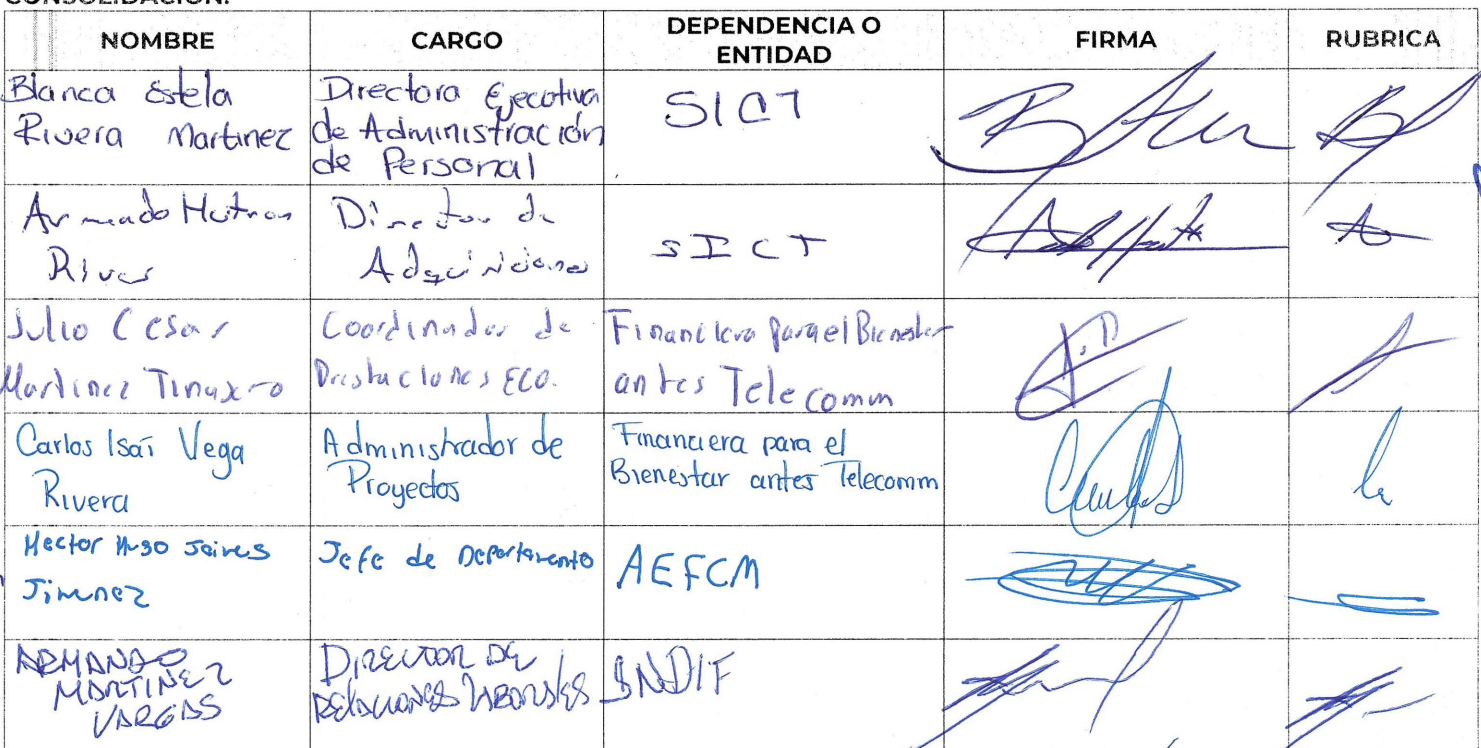 CONSOLIDACIÓN:
NOMBRE CARGO DEPENDENCIA O ENTIDAD FIRMA RUBRICA
Blanca Estela
Rivera Martinez
Directora Ejecutiva
de Administración
de Personal
SICT
Armando
Director de
Adquisiciones
SICT
Julio Cesar
Martinez
Coordinador de
Prestaciones ECO.
Financiera para el Bienestar
antes Telecomm
Carlos Isaí Vega
Rivera
Administrador de
Proyectos
Financiera para el
Bienestar antes Telecomm
Hector Hugo
Jimenez
Jefe de Departamento
AEFCM
ARMANDO
MARTINEZ
VARGAS
DIRECTOR DE
RELACIONES LABORALES
SNDIF